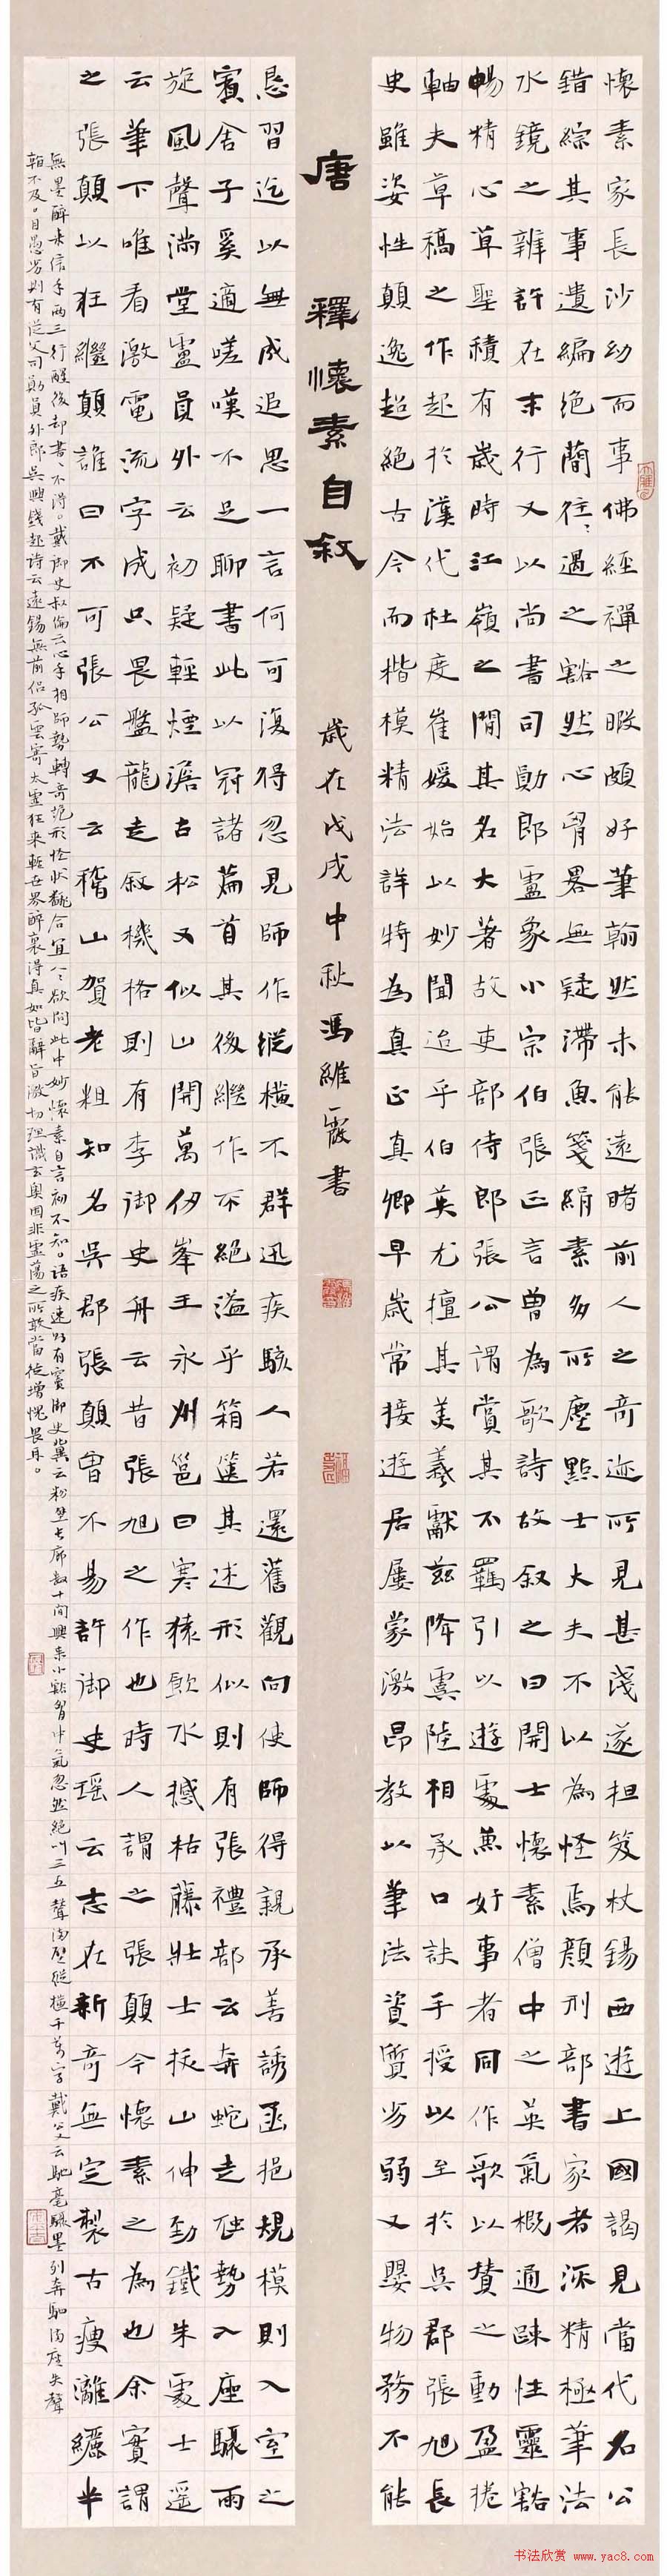 懷素家長沙幼而事佛經禪之暇頗好筆翰然未能遠睹前人之奇迹所見甚淺遂担笈杖錫西遊上國謁見當代名公
錯綜其事遺編絕簡往、遇之豁然心胷畧無疑滯魚箋絹素多所塵點士大夫不以為怪焉顏刑部書家者流精極筆法
水鏡之辨許在末行又以尚書司勛郎盧象小宗伯張正言曾為歌詩故叙之曰開士懷素僧中之英氣概通疎性靈豁
暢精心草聖積有歲時江嶺之間其名大著故吏部侍郎張公謂賞其不羈引以遊處兼好事者同作歌以贊之動盈捲
軸夫草稿之作起於漢代杜度崔媛始以妙聞迨乎伯英尤擅其美羲獻茲降虞陸相承口訣手授以至於吳郡張旭長
史雖姿性顛逸超絕古今而楷模精法詳特為真正真卿早歲常接遊居屢蒙激昂教以筆法資質劣弱又嬰物務不能
唐 釋懷素自敘
歲在戊戌中秋馮維霞書
懇習迄以無成追思一言何可復得忽見師作縱橫不群迅疾駭人若還舊觀向使師得親承善誘函挹規模則入室之
賓舍子奚適嗟嘆不足聊書此以冠諸篇首其後繼作不絕溢乎箱篋其述形似則有張禮部云奔蛇走虺勢入座驟雨
旋風聲滿堂盧員外云初疑輕煙澹古松又似山開萬仞峯王永州邕曰寒猿飲水撼枯藤壯士拔山伸勁鐵朱處士遥
云筆下唯看激電流字成只畏盤龍走叙機格則有李御史舟云昔張旭之作也時人謂之張顛今懷素之為也余實謂
之張顛以狂繼顛誰曰不可張公又云稽山賀老粗知名吳郡張顛曾不易許御史瑶云志在新奇無定製古瘦灕纚半
無墨醉來信手兩三行醒後却書、不得。戴御史叔倫云心手相師勢轉奇詭形怪狀翻合宜人人欲問此中妙懷素自言初不知。語疾速則有竇御史冀云粉壁長廊數十間興來小豁胷中氣忽然絕叫三五聲滿壁縱橫千萬字戴公又云馳毫驟墨列奔駟滿座失聲
看不及。目愚劣則有從父司勛員外郎吳興錢起詩云遠錫無前侶孤雲寄太虛狂來輕世界醉裏得真如皆辭旨激切理識玄奧固非虛蕩之所敢當徒增愧畏耳。
书法欣赏 www.yac8.com